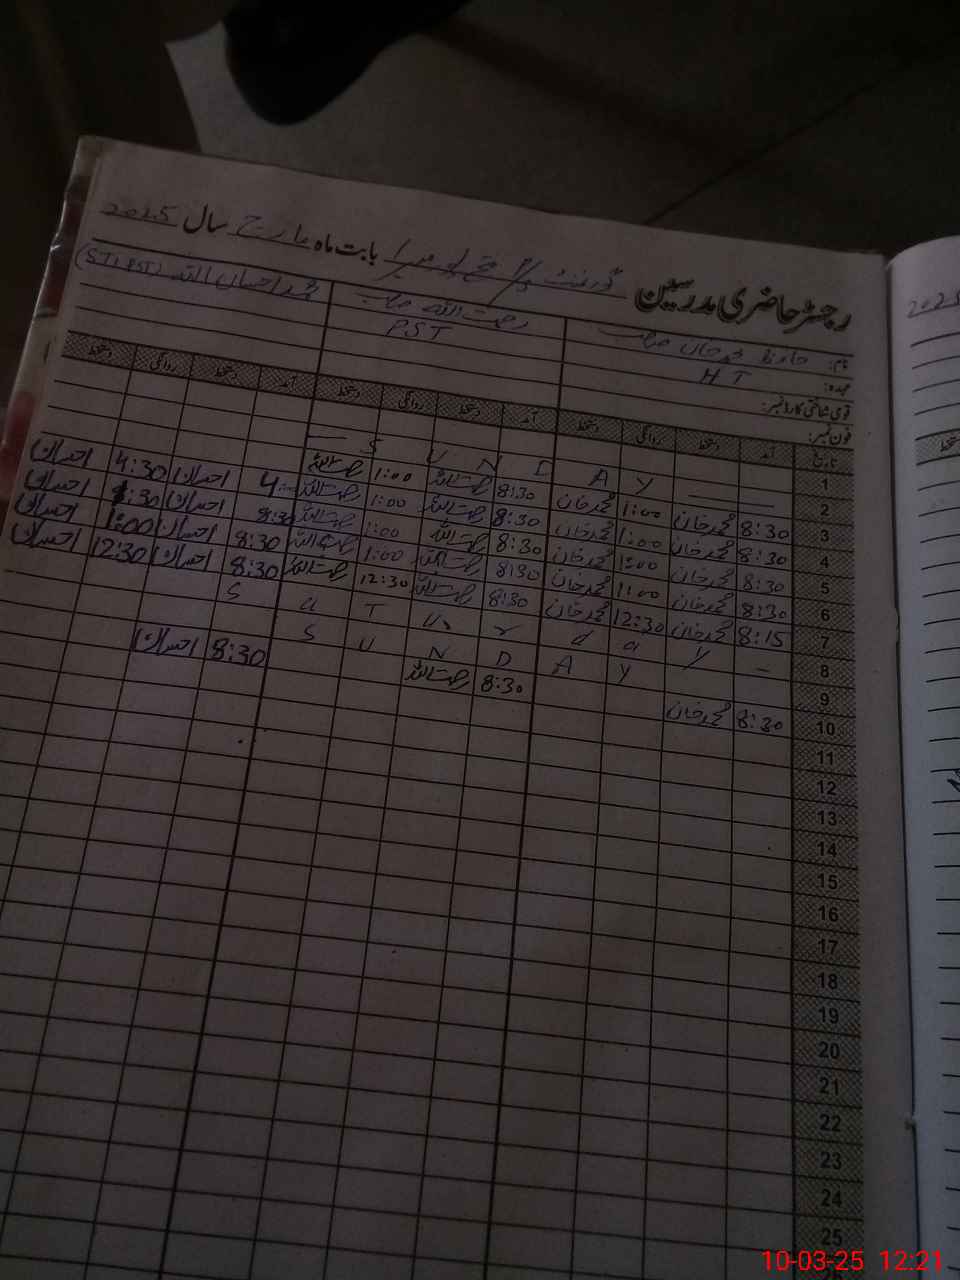 رجسٹر حاضری مدرسین گورنمنٹ بابت ماہ مارچ سال 2025
نام: حافظ محمد خان صاحب رحمت اللہ صاحب محمد احسان اللہ (STI PST)
عہدہ: HT PST
قومی شناختی کارڈ نمبر:
فون نمبر:
تاریخ آمد دستخط روانگی دستخط آمد دستخط روانگی دستخط آمد دستخط روانگی دستخط
1
2 — — Y A D N U S —
3 8:30 محمد خان 1:00 محمد خان 8:30 رحمت اللہ 1:00 رحمت اللہ احسان 4:30 احسان
4 8:30 محمد خان 1:00 محمد خان 8:30 رحمت اللہ 1:00 رحمت اللہ 8:30 احسان احسان
5 8:30 محمد خان 1:00 محمد خان 8:30 رحمت اللہ 1:00 رحمت اللہ 8:30 احسان 1:00 احسان
6 8:30 محمد خان 1:00 محمد خان 8:30 رحمت اللہ 1:00 رحمت اللہ 8:30 احسان 12:30 احسان
7 8:15 محمد خان 12:30 محمد خان 8:30 رحمت اللہ 12:30 رحمت اللہ
8 S a T u r d a y —
9 S U N D A Y
10 8:30 محمد خان 8:30 رحمت اللہ 8:30 احسان
11
12
13
14
15
16
17
18
19
20
21
22
23
24
25
2025
دستخط
10-03-25 12:21